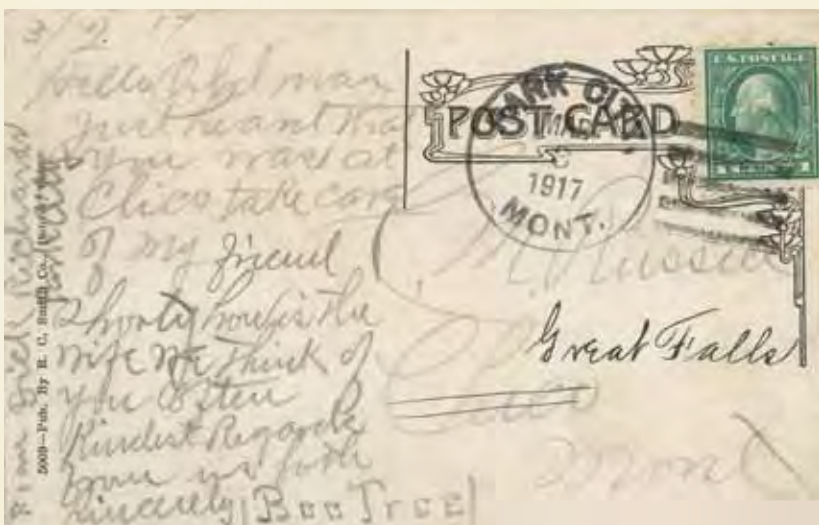 3/2 17
Hello Old man
Just heard that
you was at
Chico take care
of my friend
Shorty how is the
wife We think of
you often
Kindest Regards
from us both
Sincerely Bee Tree
5009—Pub. By H. C. Smith Co.,
POST CARD
PARK CITY
MAR
1917
MONT.
U.S. POSTAGE
Russell
Great Falls
Chico
Mont